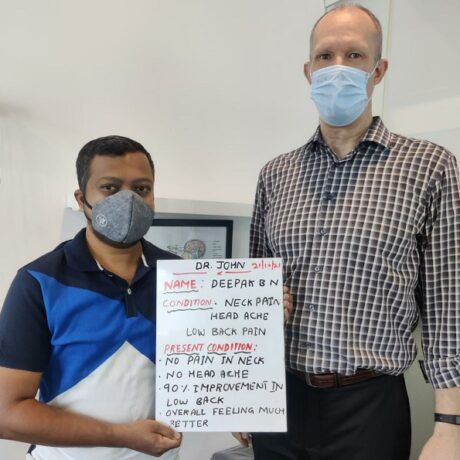 DR. JOHN 21/12/21
NAME: DEEPAK B N
CONDITION. NECK PAIN
HEAD ACHE
LOW BACK PAIN
PRESENT CONDITION:
• NO PAIN IN NECK
• NO HEAD ACHE
• 90% IMPROVEMENT IN
LOW BACK
• OVERALL FEELING MUCH
BETTER